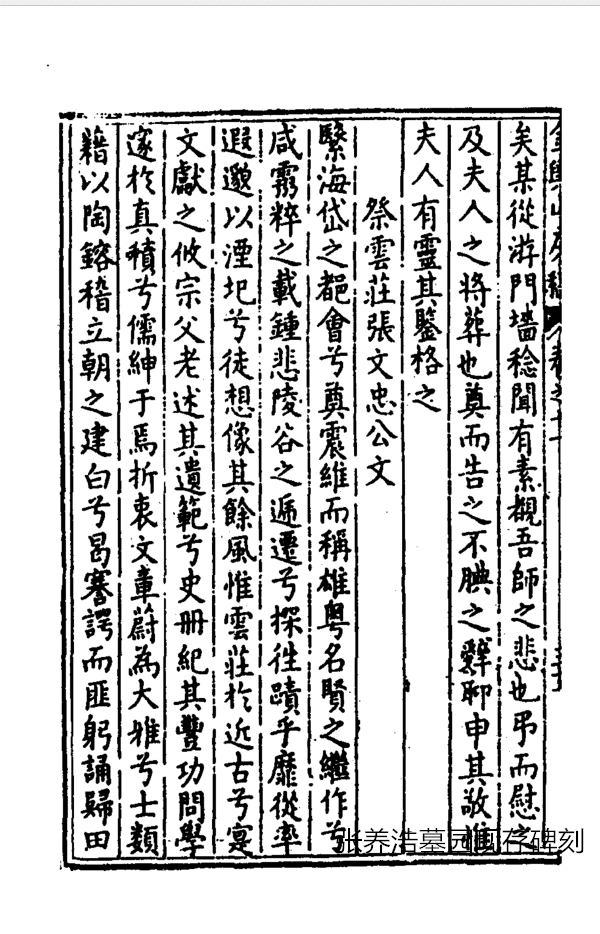 矣某從游門墻稔聞有素覩吾師之悲也弔而慰之
及夫人之將葬也奠而告之不腆之辭聊申其敬惟
夫人有靈其鑒格之
祭雲莊張文忠公文
繄海岱之都會兮奠震維而稱雄粤名賢之繼作兮
咸霛粹之載鍾悲陵谷之遞遷兮探徃蹟乎靡從率
遐邈以湮圯兮徒想像其餘風惟雲莊於近古兮寔
文獻之攸宗父老述其遺範兮史册紀其豐功問學
邃於真積兮儒紳于焉折衷文章蔚為大雅兮士類
藉以陶鎔稽立朝之建白兮曷謇諤而匪躬誦歸田
张养浩墓园 存碑刻